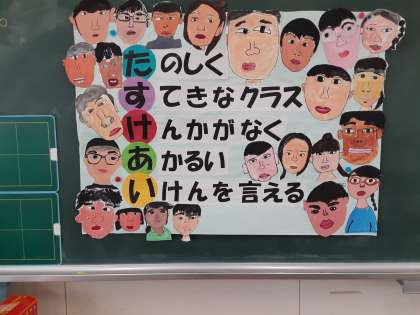 たのしく
すてきなクラス
けんかがなく
あかるい
いけんを言える